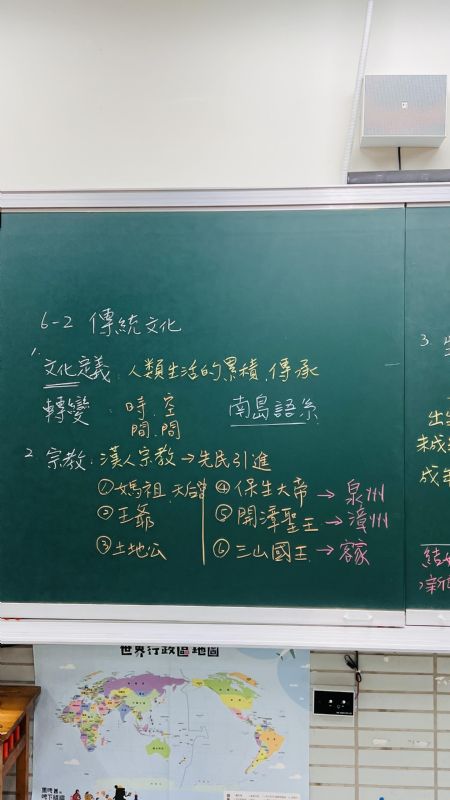 6-2 傳統文化
1. 文化定義:人類生活的累積、傳承
轉變:時間、空間 南島語系
2. 宗教:漢人宗教→先民引進
①媽祖、天后宮
②王爺
③土地公
④保生大帝→泉州
⑤開漳聖王→漳州
⑥三山國王→客家
3.
未成年
成年
結婚
世界行政區地圖